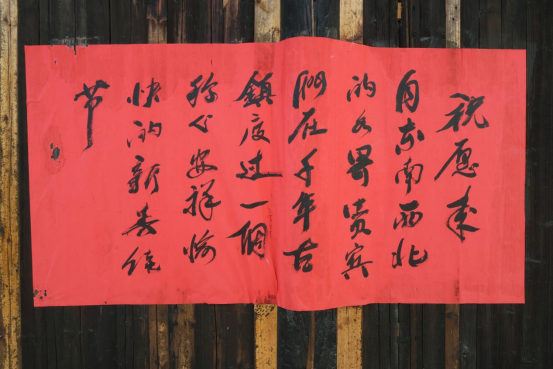 祝愿来
自东南西北
的各界贵宾
们在千年古
鎮度过一個
称心安祥愉
快的新春佳
节